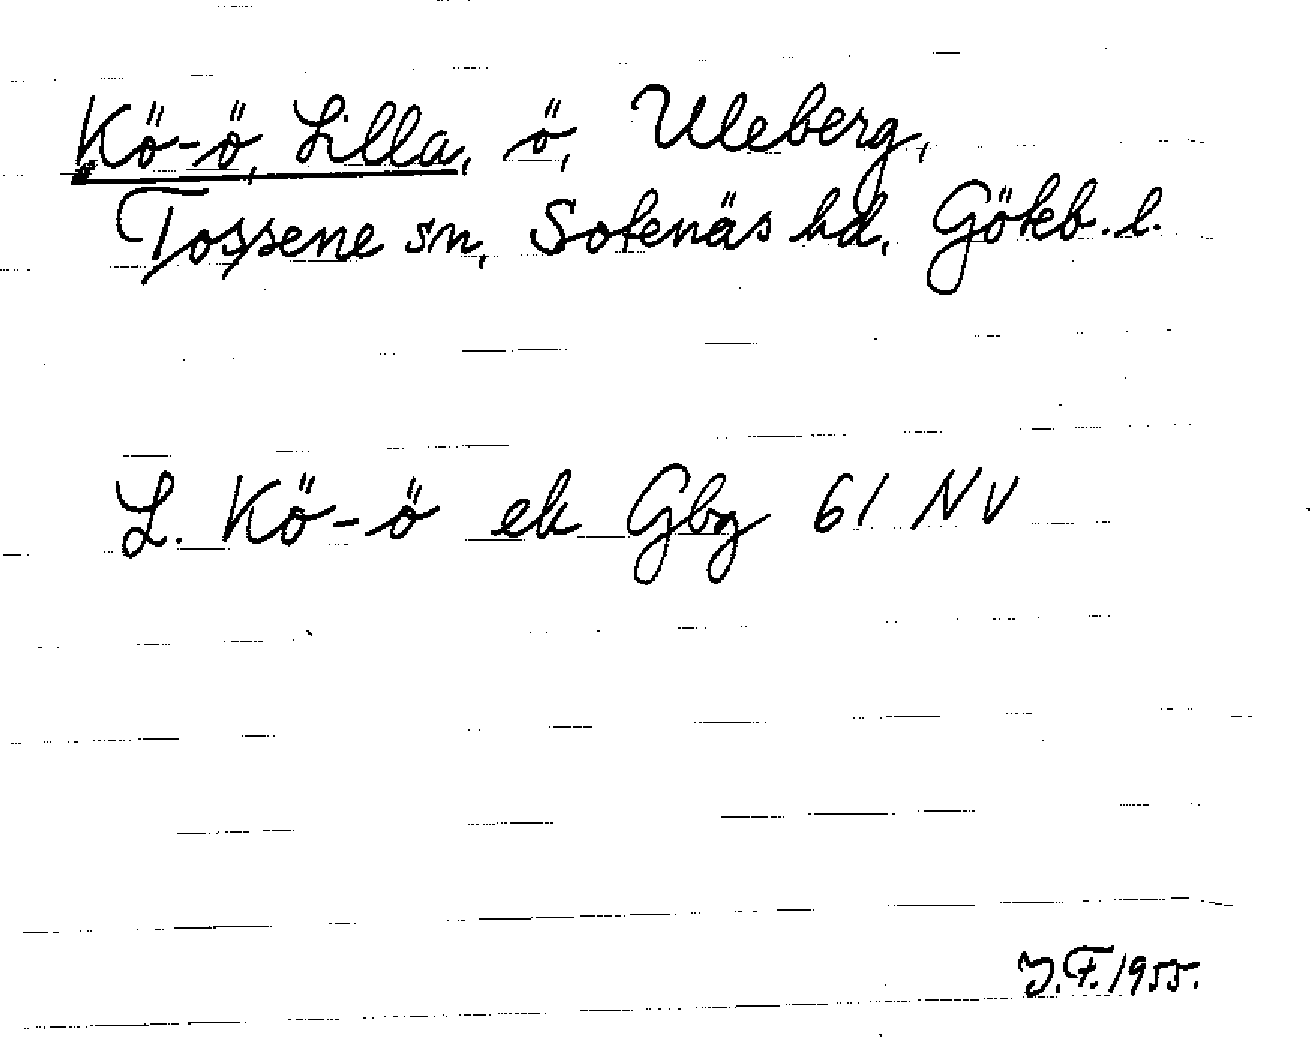 Kö-ö, Lilla, ö, Uleberg,
Tossene sn, Sotenäs hd, Göteb. l.
L. Kö-ö ek Gbg 61 NV
J.F. 1955.